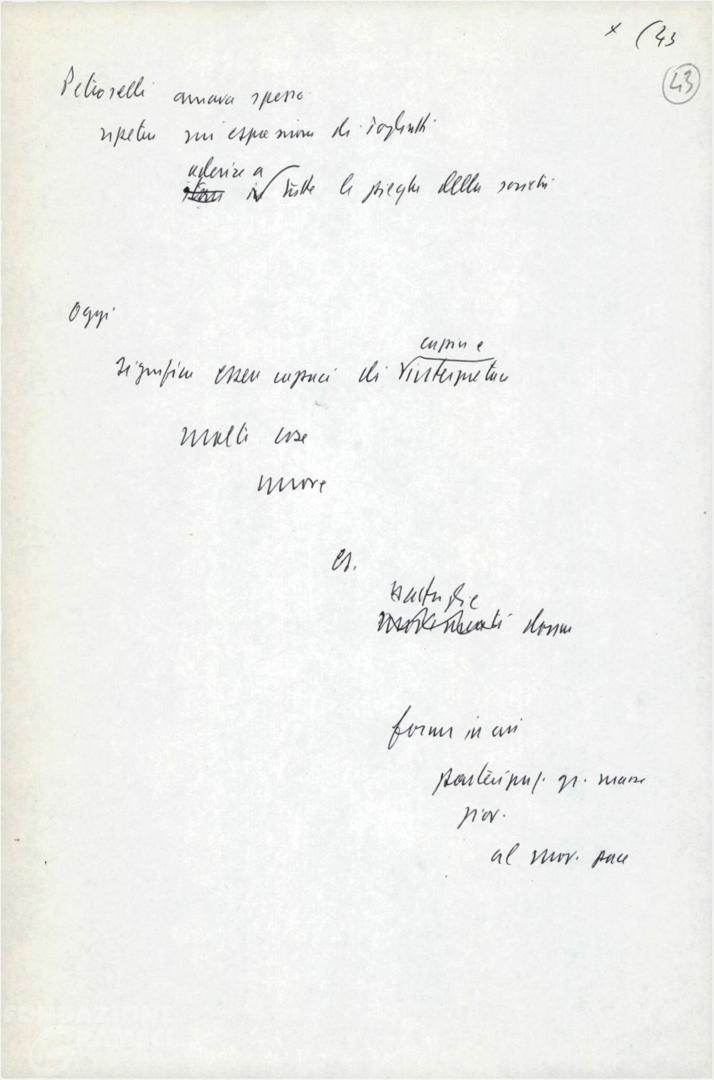 x (43
43
Petroselli amava spesso
ripetere un'espressione di Togliatti
aderire a
in tutte le pieghe della società
Oggi
significa essere capaci di
capire e
interpretare
molte cose
nuove
es.
battaglie
movimenti donne
forme in cui
partecip. gr. masse
giov.
al mov. pace
FONDAZIONE
GRAMSCI